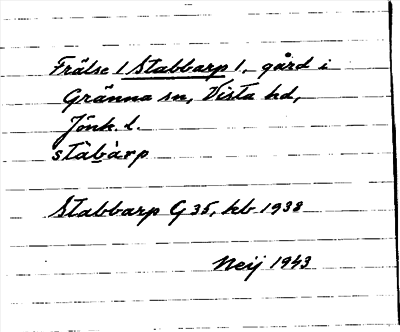 Frälse / Stabbarp /, gård i
Gränna sn, Vista hd,
Jönk. l.
stàbàrp
Stabbarp G 35, kb 1938
Neij 1943